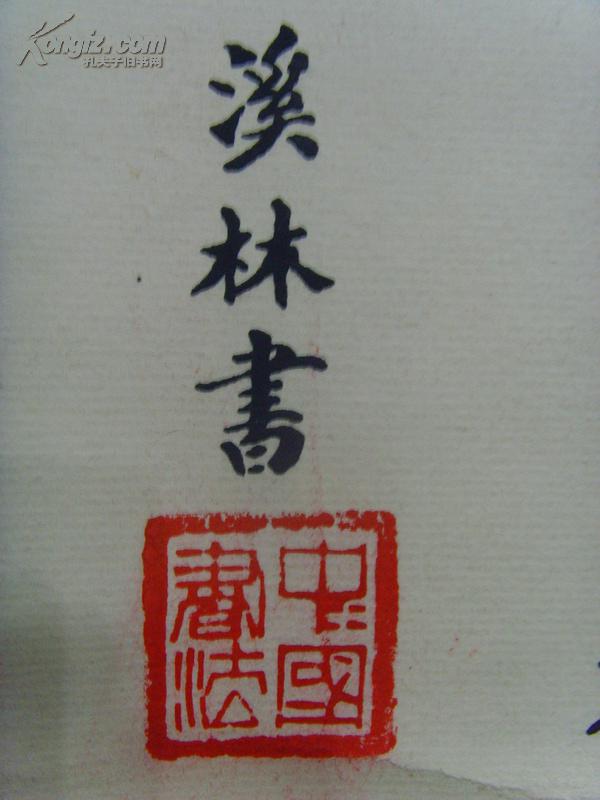 Kongfz.com
孔夫子旧书网
溪林書
中國
書法